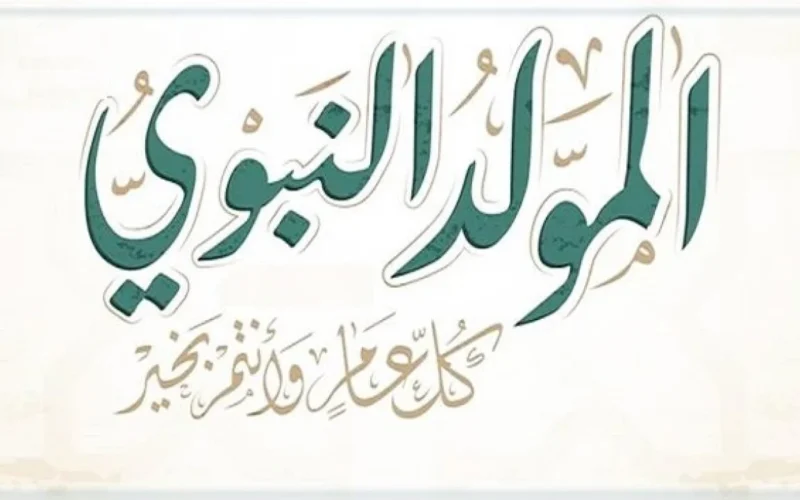 المَوّلدُ النَبَوّيُ
كُلّ عَامٍ وَأَنتُمْ بَخَيرْ